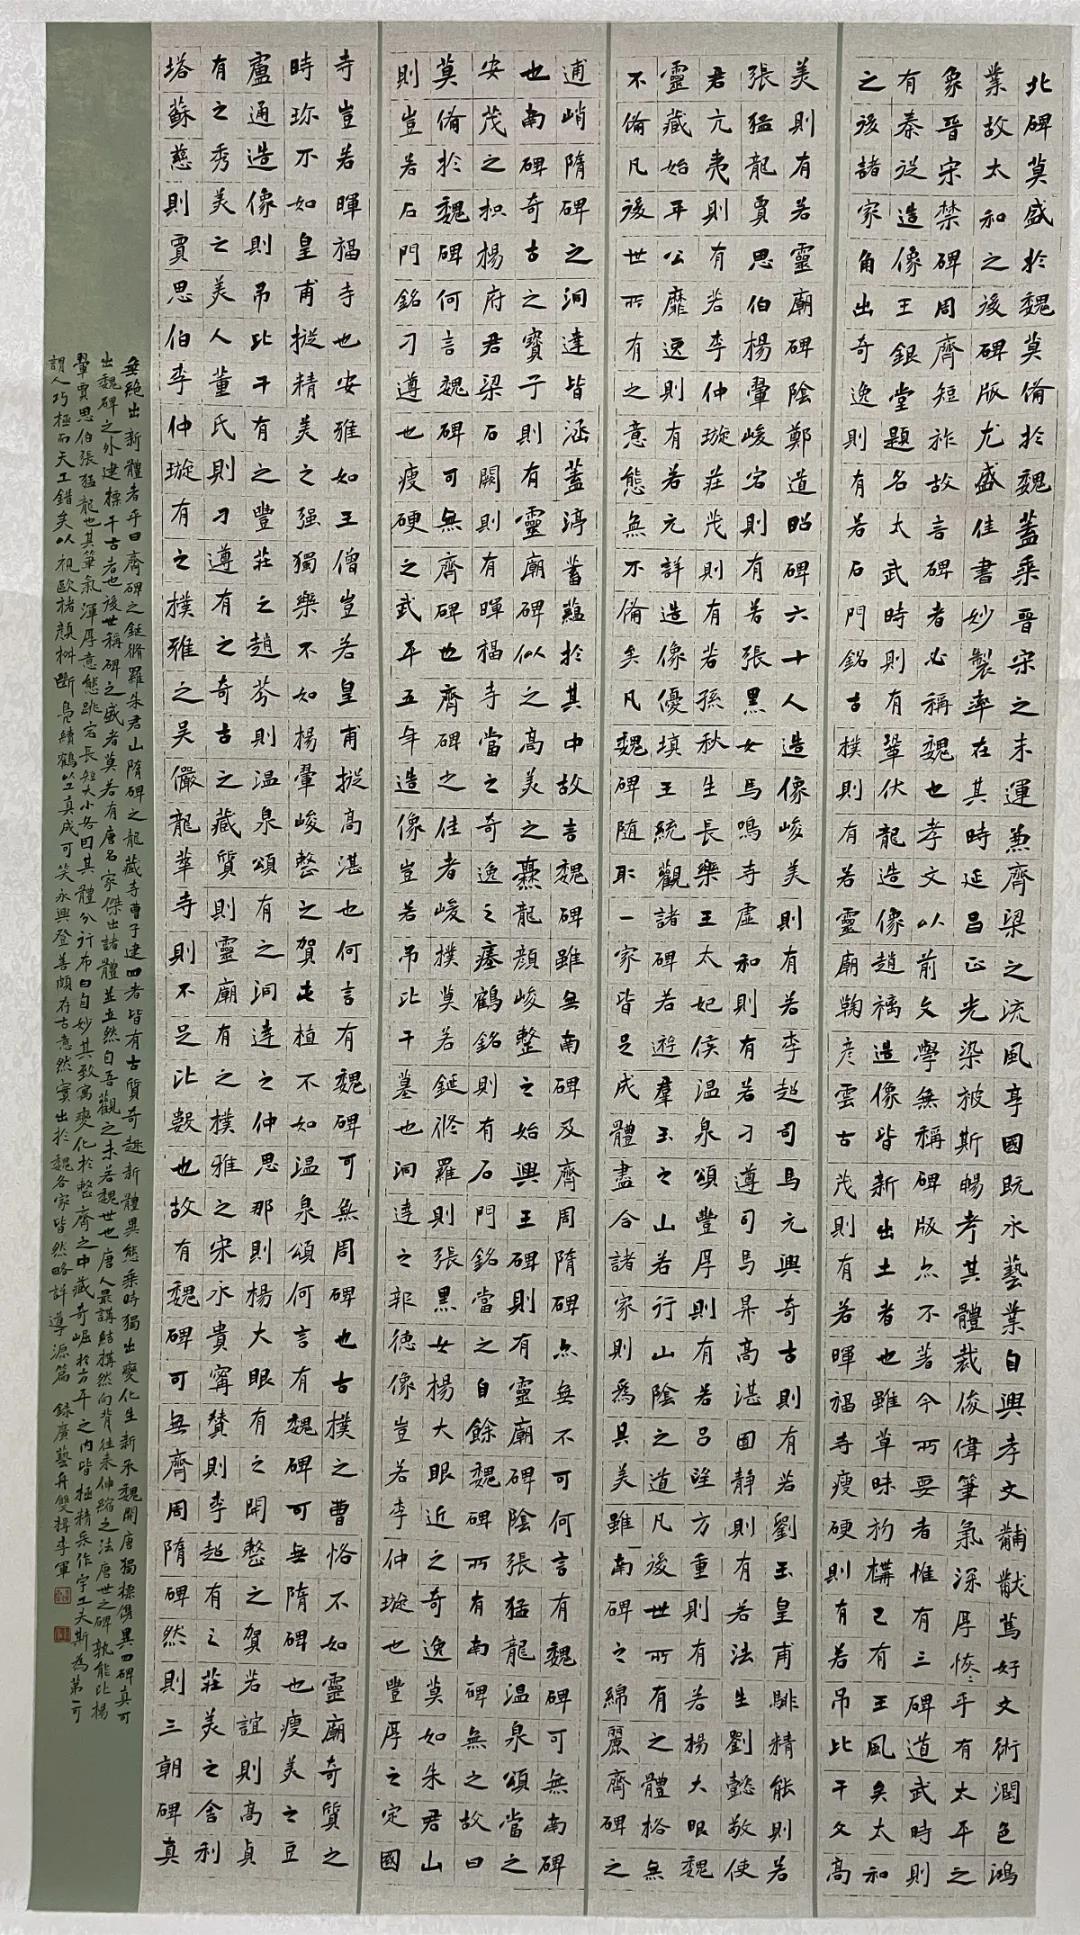 北碑莫盛於魏莫備於魏蓋乘晉宋之末運兼齊梁之流風享國既永藝業自興孝文黼黻篤好文術潤色鴻
業故太和之後碑版尤盛佳書妙製率在其時延昌正光染被斯暢考其體裁俊偉筆氣深厚恢〻乎有太平之
象晉宋禁碑周齊短祚故言碑者必稱魏也孝文以前文學無稱碑版亦不著今所要者惟有三碑道武時則
有秦從造像王銀堂題名太武時則有鞏伏龍造像趙造像皆新出土者也雖草昧初構已有王風矣太和
之後諸家角出奇逸則有若石門銘古樸則有若靈廟鞠彥雲古茂則有若暉福寺瘦硬則有若吊比干文高
美則有若靈廟碑陰鄭道昭碑六十人造像峻美則有若李超司馬元興奇古則有若劉玉皇甫驎精能則若
張猛龍賈思伯楊翬峻宕則有若張黑女馬鳴寺虛和則有若刁遵司馬昇高湛圓靜則有若法生劉懿敬使
君亢夷則有若李仲璇莊茂則有若孫秋生長樂王太妃侯溫泉頌豐厚則有若呂望方重則有若楊大眼魏
靈藏始平公靡逸則有若元詳造像優填王統觀諸碑若遊羣玉之山若行山陰之道凡後世所有之體格無
不備凡後世所有之意態無不備矣凡魏碑隨取一家皆足成體盡合諸家則為具美雖南碑之綿麗齊碑之
逋峭隋碑之洞達皆涵蓋渟蓄蘊於其中故言魏碑雖無南碑及齊周隋碑亦無不可何言有魏碑可無南碑
也南碑奇古之寶子則有靈廟碑似之高美之爨龍顏峻整之始興王碑則有靈廟碑陰張猛龍溫泉頌當之
安茂之枳楊府君梁石闕則有暉福寺當之奇逸之瘞鶴銘則有石門銘當之自餘魏碑所有南碑無之故曰
莫備於魏碑何言魏碑可無齊碑也齊碑之佳者峻樸莫若鋋修羅則張黑女楊大眼近之奇逸莫如朱君山
則豈若石門銘刁遵也瘦硬之武平五年造像豈若吊比干墓也洞達之報德像豈若李仲璇也豐厚之定國
寺豈若暉福寺也安雅如王僧豈若皇甫摐高湛也何言有魏碑可無周碑也古樸之曹恪不如靈廟奇質之
時珍不如皇甫摐精美之强獨樂不如楊翬峻整之賀屯植不如溫泉頌何言有魏碑可無隋碑也瘦美之豆
盧通造像則吊比干有之豐莊之趙芬則溫泉頌有之洞達之仲思那則楊大眼有之開整之賀若誼則高貞
有之秀美之美人董氏則刁遵有之奇古之藏質則靈廟有之樸雅之宋永貴甯贊則李超有之莊美之舍利
塔蘇慈則賈思伯李仲璇有之樸雅之吳儼龍華寺則不足比數也故有魏碑可無齊周隋碑然則三朝碑真
無絕出新體者乎曰齊碑之鋋修羅朱君山隋碑之龍藏寺曹子建四者皆有古質奇趣新體異態乘時獨出變化生新承魏開唐獨標儁異四碑真可
出魏碑之外建標千古者也後世稱碑之盛者莫若有唐名家傑出諸體並立然自吾觀之未若魏世也唐人最講結構然向背往來伸縮之法唐世之碑孰能比楊
翬賈思伯張猛龍也其筆氣渾厚意態跳宕長短大小各因其體分行布白自妙其致寓變化於整齊之中藏奇崛於方平之內皆極精采作字工夫斯為第一可
謂人巧極而天工錯矣以視歐褚顏柳斷鳧續鶴以工真成可笑永興登善頗存古意然實出於魏各家皆然略詳導源篇 錄廣藝舟雙楫李軍